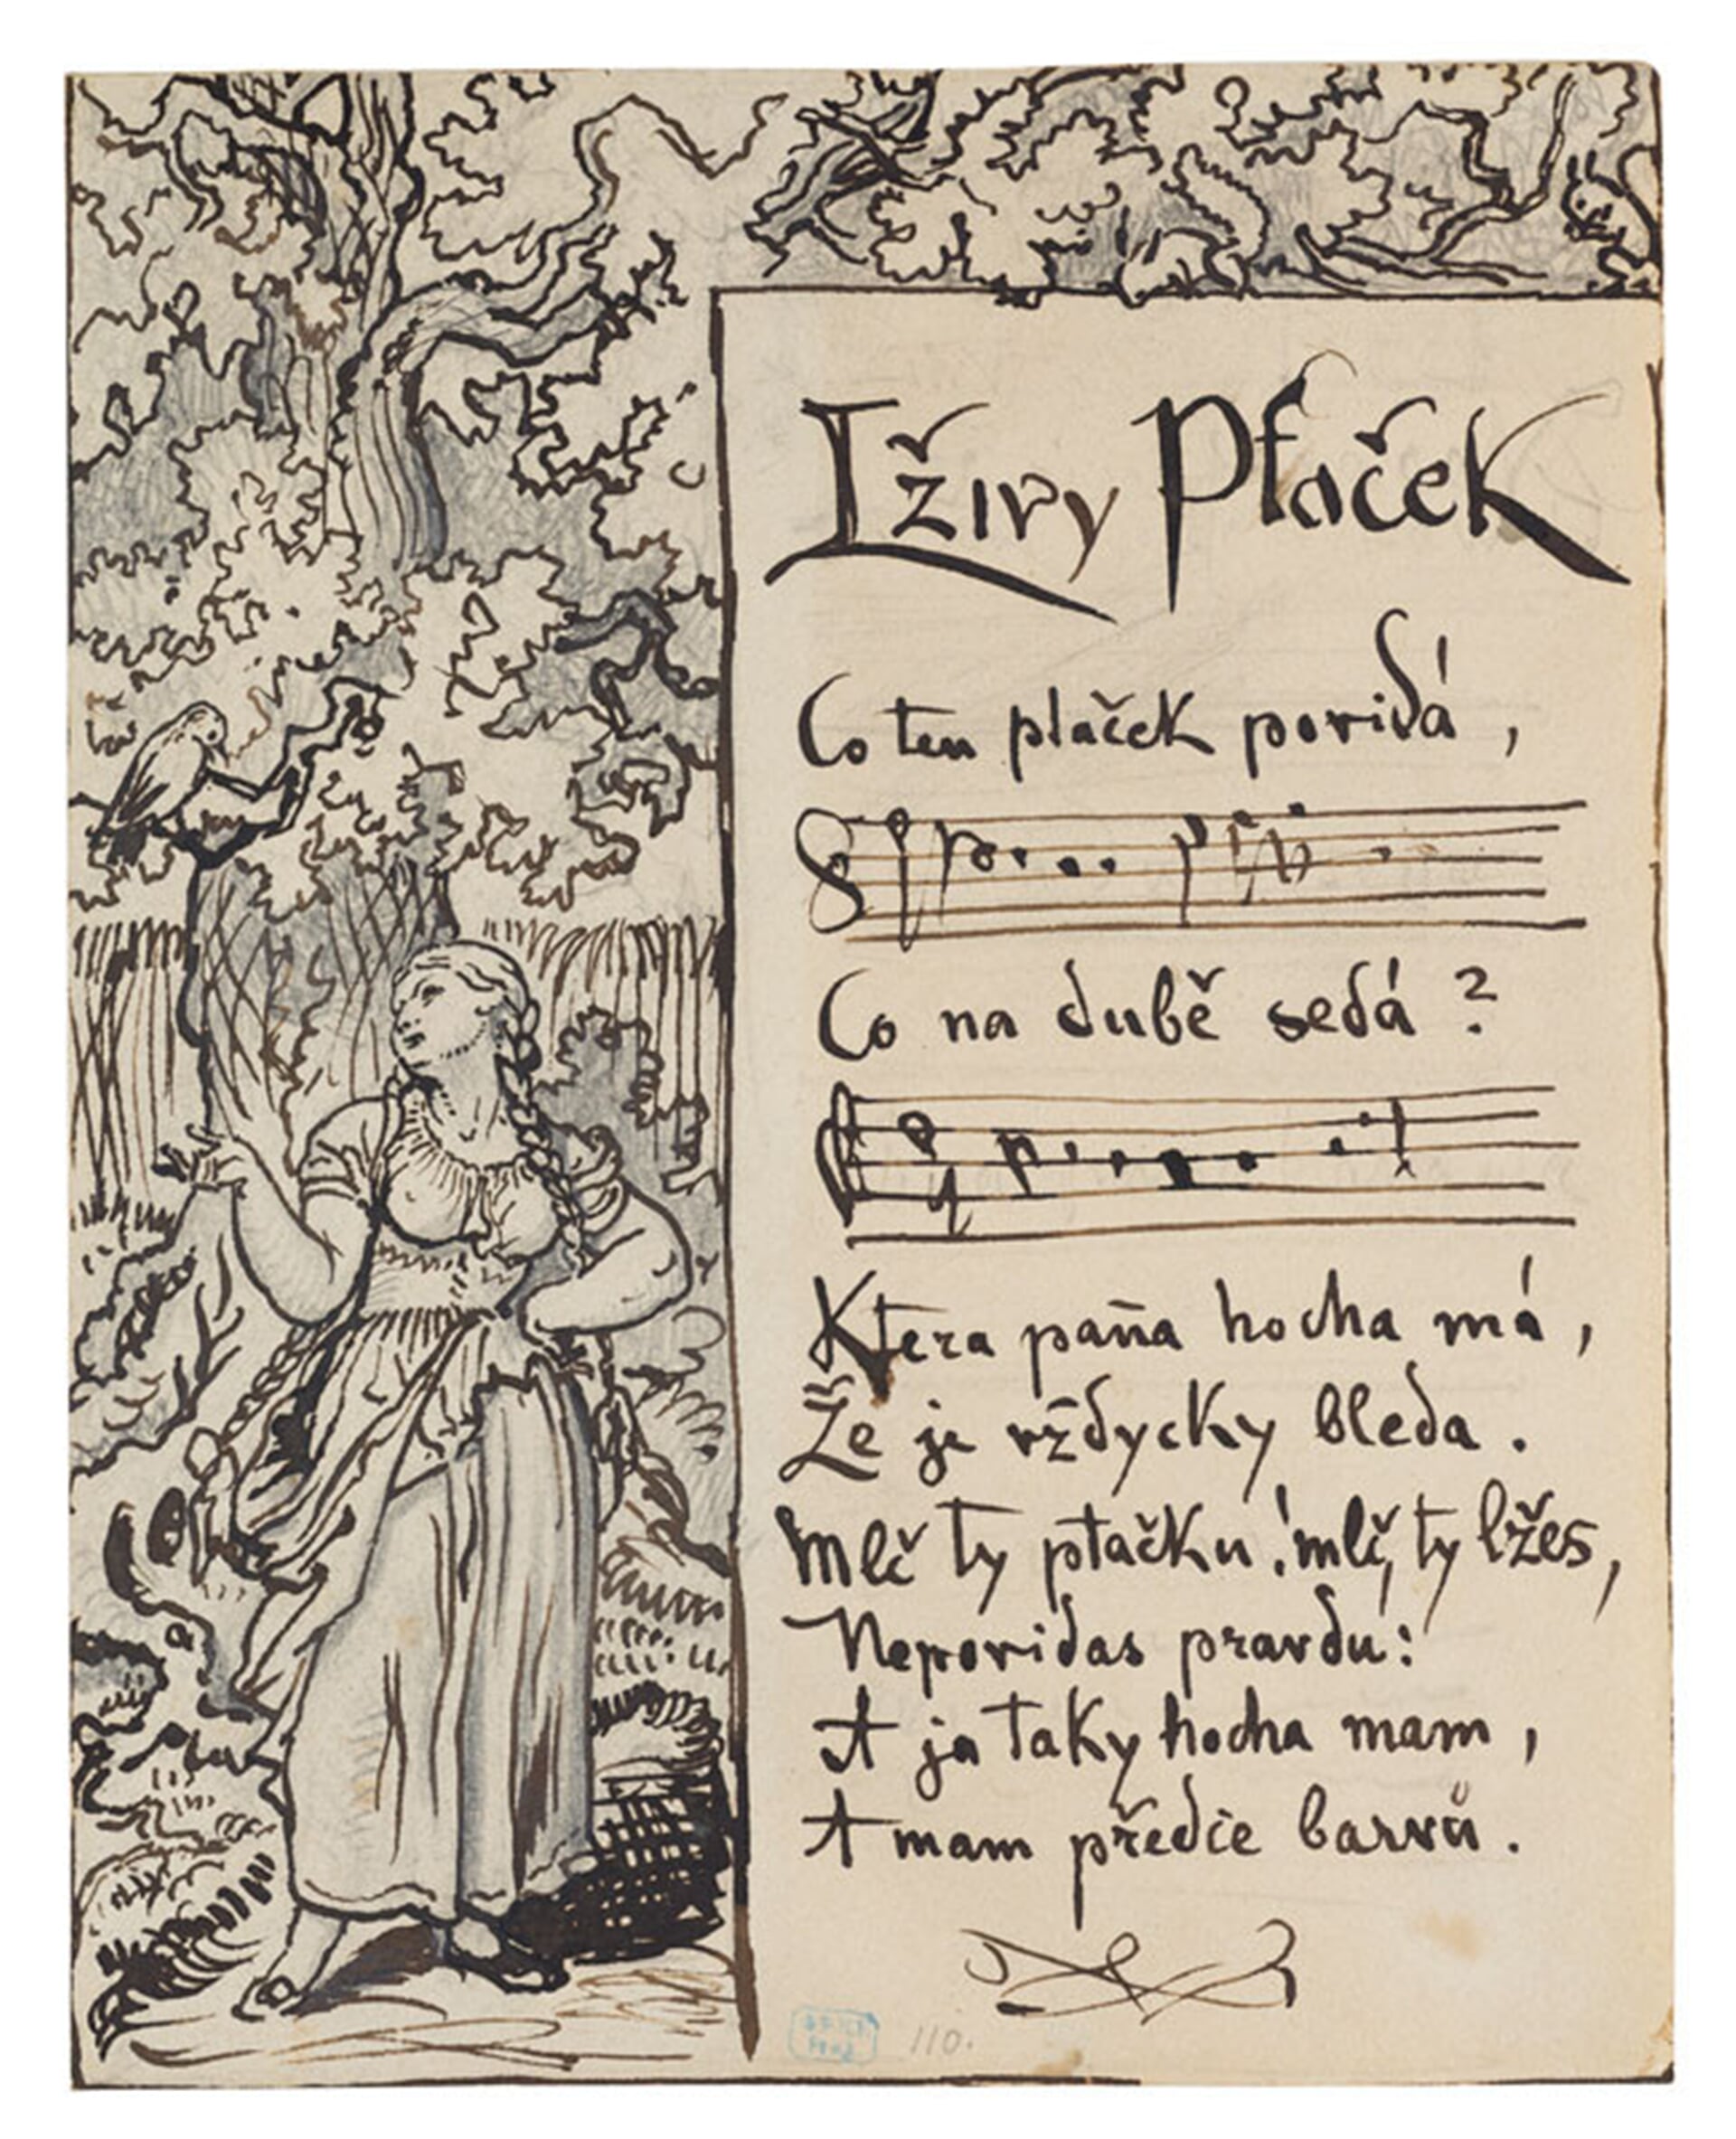 Lživy Ptaček
Co ten ptaček povidá ,
Co na dubě sedá ?
Ktera paňa hocha má ,
Že je vždycky bleda .
Mlč ty ptačku ! mlč, ty lžes ,
Nepovidas pravdu :
A ja taky hocha mam ,
A mam předce barvů .
110.